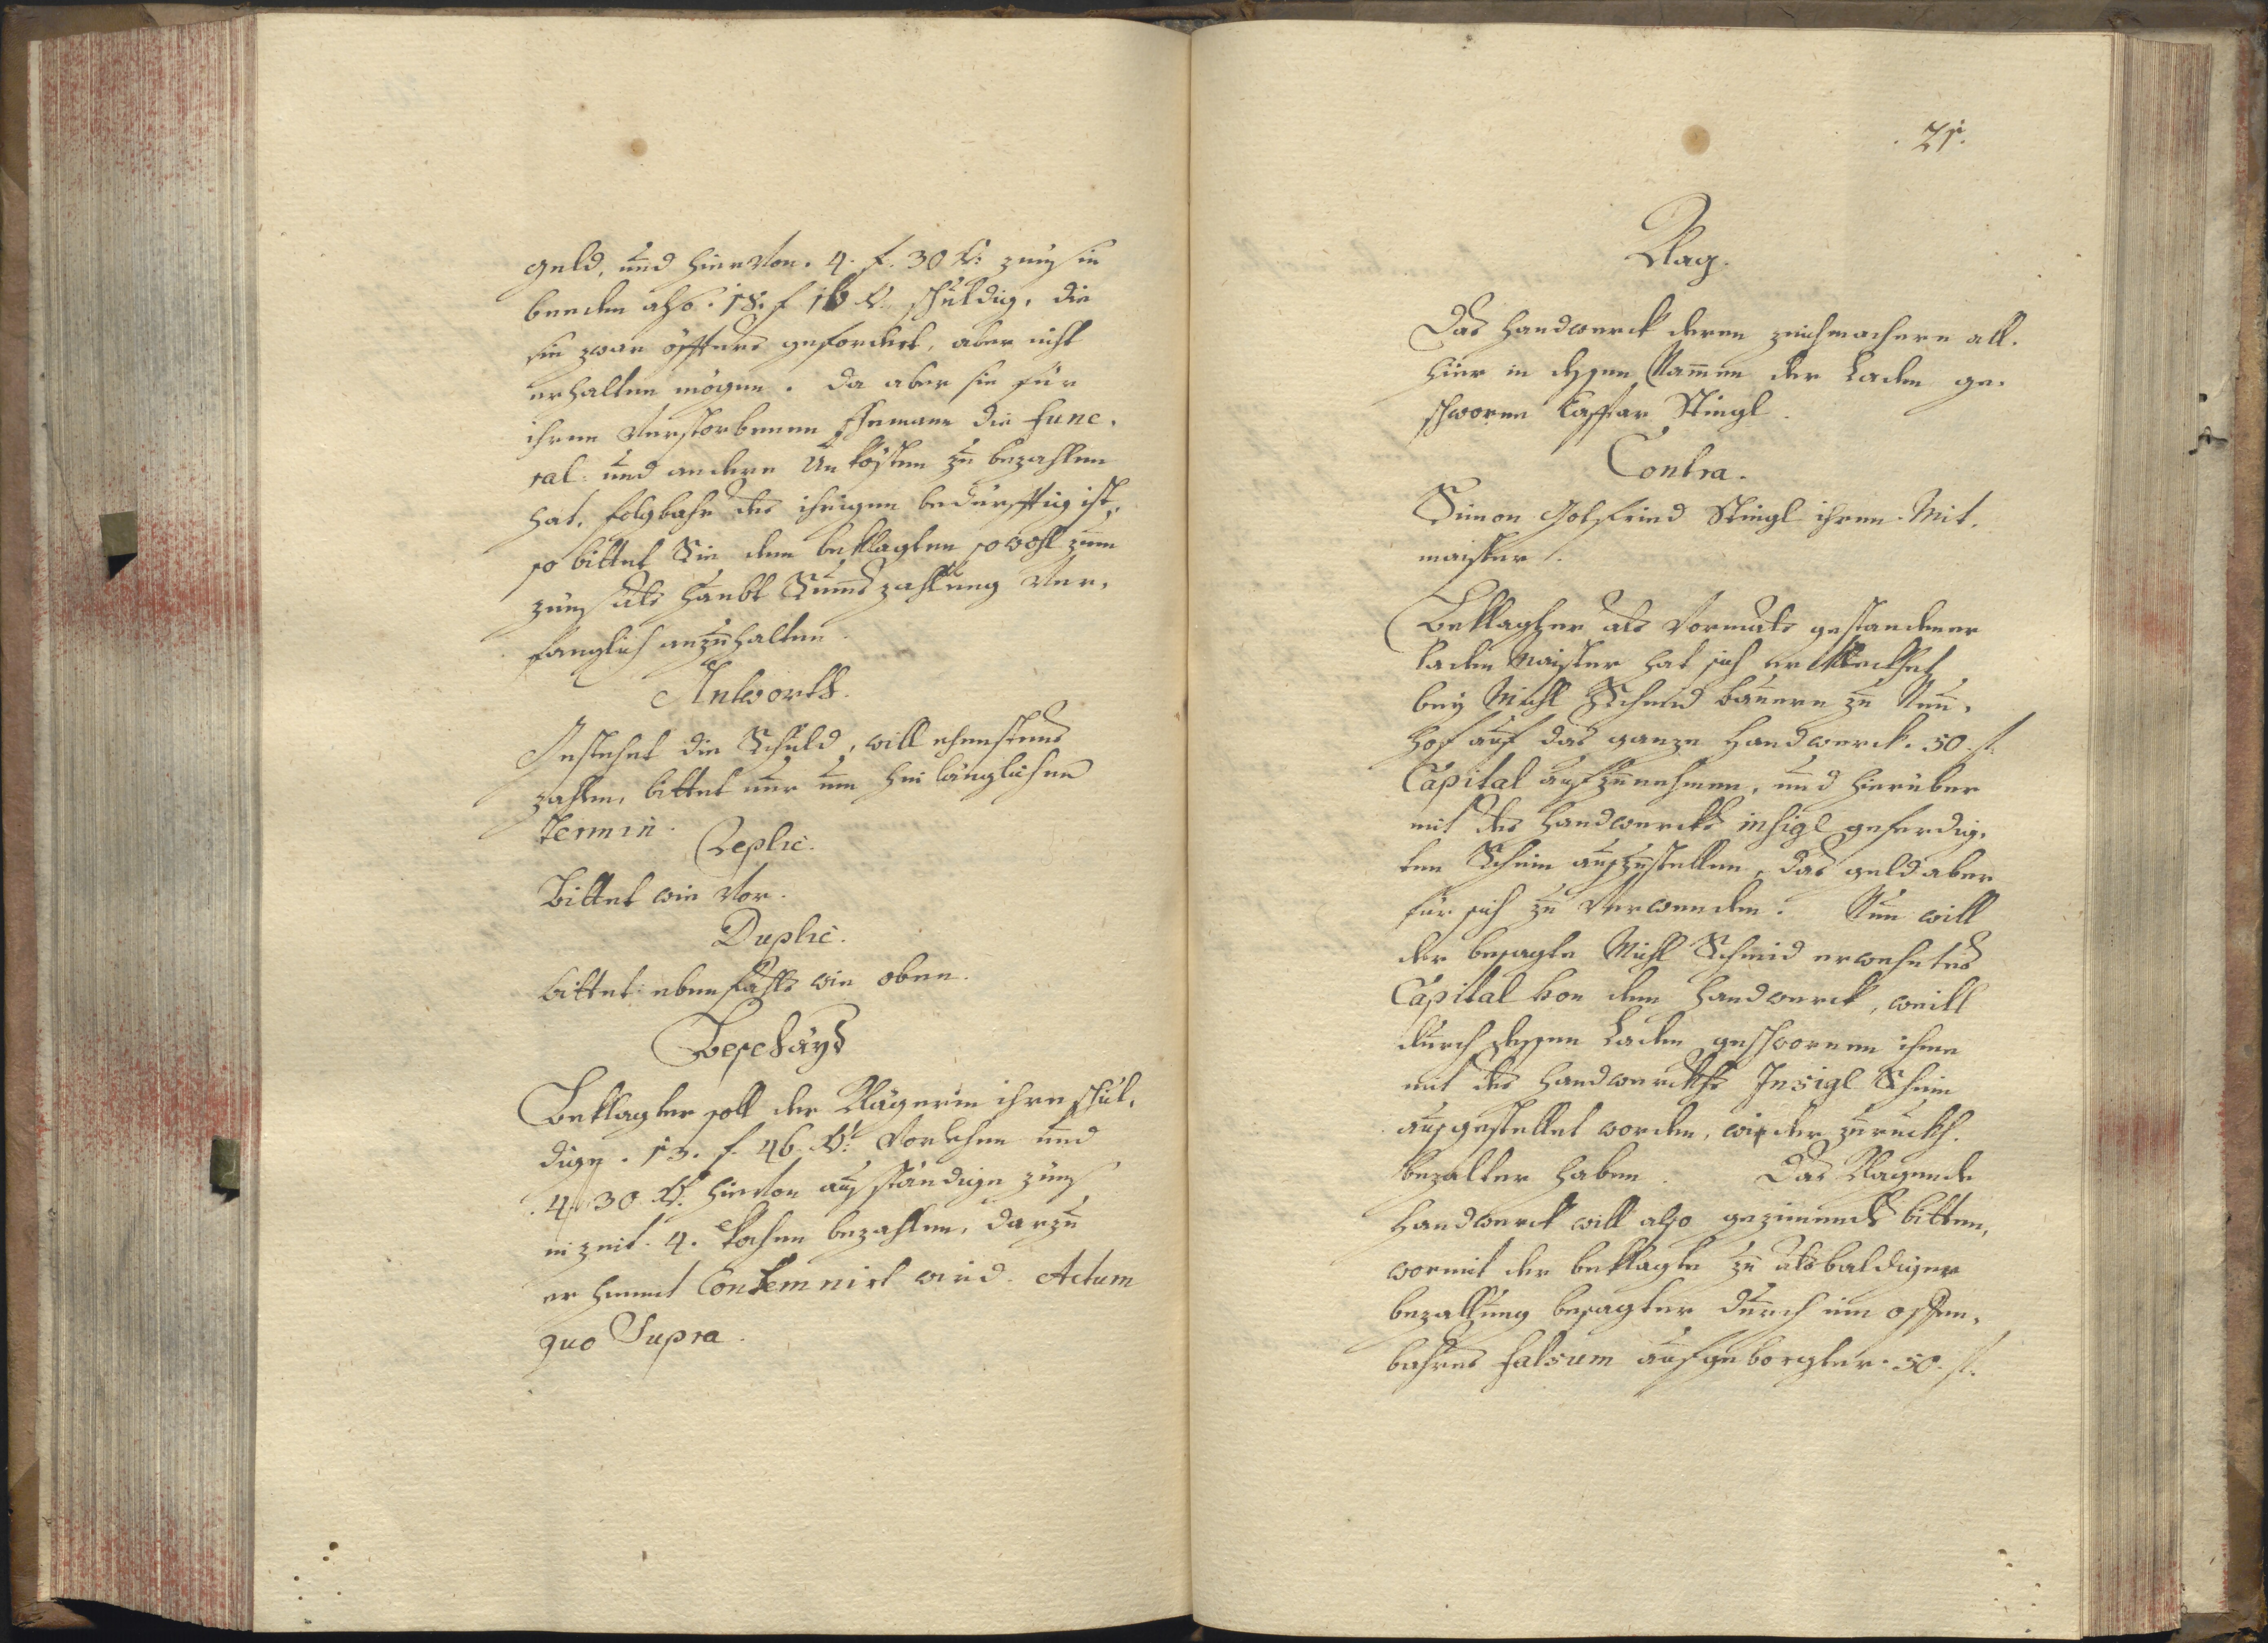 geld, und hiervon. 4. f. 30 kr: zünß in
beeden also. 18. f 16 kr. schuldig, die
sie zwar öffters geforderet, aber nicht
erhalten mögen. da aber sie für
ihren verstorbenen Ehemann die fune,
ral: und andere Unkosten zu bezahlen
hat, folgbahr des ihrigen bedürfftig ist,
so bittet Sie den beklagten sowohl zum
zünß als haubt Summs zahlung ver,
fänglich anzuhalten.
Antwortt.
Gestehet die Schuld, will ehenstens
zahlen, bittet nur um hinlänglichen
Termin.
Replic.
Bittet wie vor.
Duplic.
bittet ebenfahls wie oben.
Beschayd
Beklagter soll der Klägerin ihre schul,
dige. 13. f. 46. kr: Vorlehen und
.4 f 30 kr. hievon ausständige zünß
in zeit. 4. wochen bezahlen, darzu
er hiemit Condemnirt wird. Actum
quo Supra.
.21.
Klag.
Das Handwerck deren zeichmachern all,
hier in dessen Nammen der Laden ge,
schworne Casspar Stingl.
Contra.
Simon Gottfried Stingl ihren Mit,
maister.
Beklagter als vormals gestandener
laden Maister hat sich erklecket
bey Michl Schmid bauern zu Neu,
hof auf das ganze Handwerck. 50 f.
Capital aufzunehmen, und hierüber
mit des Handwercks insigl geferdig,
ten Schein auszustellen, das geld aber
für sich zu verwenden. Nun will
der besagte Michl Schmid erwehntes
Capital von dem Handwerck, weill
durch dessen Laden geschwornen ihme
mit des Handwercks Insigl Schein
ausgestellet worden, wieder zurückh
bezalter haben. Das Klagende
Handwerck will also gezimend bitten,
wormit der beklagte zu alsbaldiger
bezallung besagter durch ein offen,
bahres falsum aufgeborgter. 50. f.